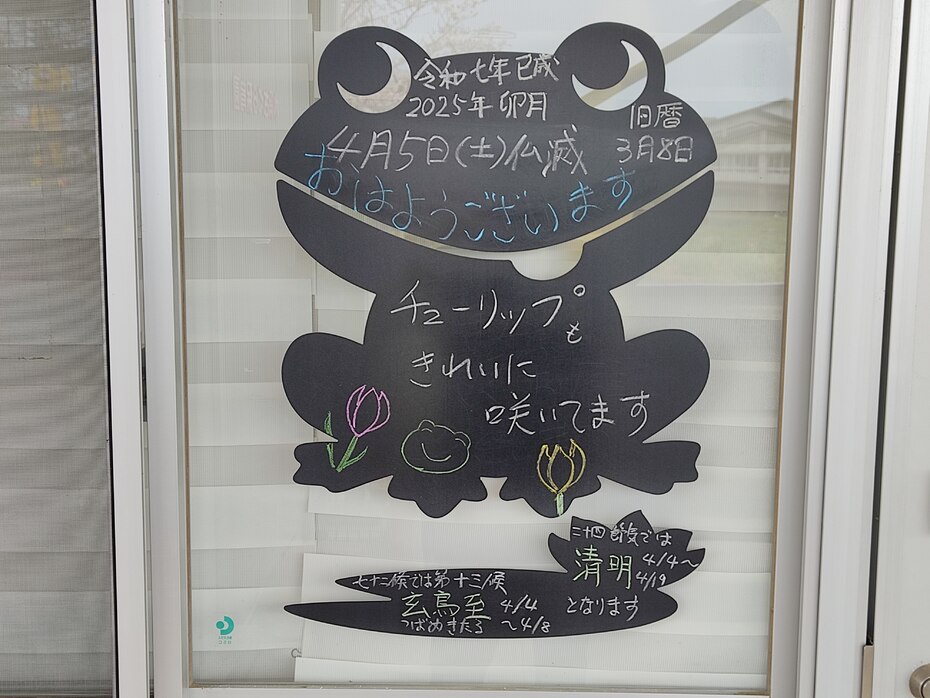 令和七年 巳歳
2025年 卯月
旧暦
4月5日(土)仏滅
3月8日
おはようございます
チューリップも
きれいに
咲いてます
二十四節気では
清明 4/4～
4/19
七十二候では第十三候
玄鳥至 4/4
となります
つばめきたる ～4/8